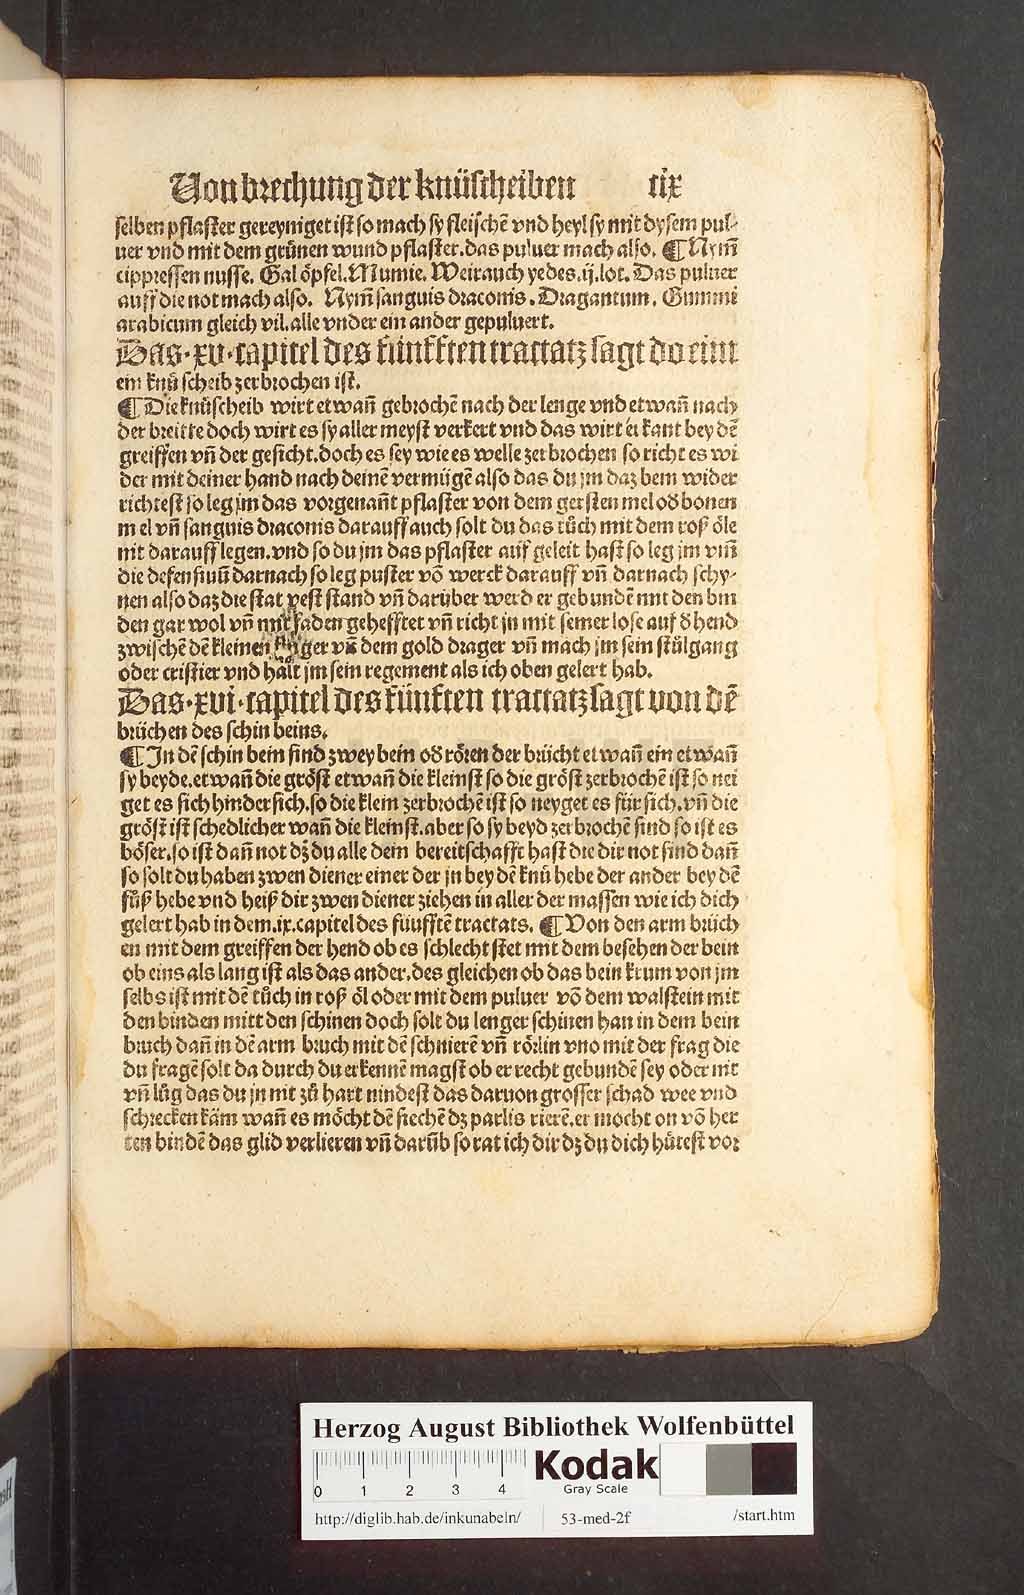 Von brechung der knüscheiben cix
selben pflaster gereyniget ist so mach sy fleischē vnd heyl sy mit dysem pul-
uer vnd mit dem grünen wund pflaster. das puluer mach also. ¶ Nym̄
cippressen nusse. Gal öpfel. Mumie. Weirauch yedes .ij. lot. Das puluer
auff die not mach also. Nym̄ sanguis draconis. Dragantum. Gummi
arabicum gleich vil. alle vnder ein ander gepuluert.
Das .xv. capitel des fünfften tractatz sagt do eim
ein knü scheib zerbrochen ist.
¶ Die knüscheib wirt etwan̄ gebrochē nach der lenge vnd etwan̄ nach
der breitte doch wirt es sy aller meyst verkert vnd das wirt er kant bey dē
greiffen vn̄ der gesicht. doch es sey wie es welle zerbrochen so richt es wi
der mit deiner hand nach deinē vermügē also das du jm daz bem wider
richtest so leg jm das vorgenan̄t pflaster von dem gersten mel od̄ bonen
mel vn̄ sanguis draconis darauff auch solt du das tůch mit dem roß öle
nit darauff legen. vnd so du jm das pflaster auf geleit hast so leg jm vm̄
die defensiuū darnach so leg puster vō werck darauff vn̄ darnach schy-
nen also daz die stat vest stand vn̄ darüber werd er gebundē mit den bin
den gar wol vn̄ mit faden gehefftet vn̄ richt jn mit seiner lose auf d̄ hend
zwischē dē kleinen finger vn̄ dem gold drager vn̄ mach jm sein stülgang
oder cristier vnd halt jm sein regement als ich oben gelert hab.
Das .xvi. capitel des fünften tractatz sagt von dē
brüchen des schin beins.
¶ In dē schin bein sind zwey bein od̄ rören der brücht etwan̄ ein etwan̄
sy beyde. etwan̄ die gröst etwan̄ die kleinst so die gröst zerbrochē ist so nei
get es sich hinder sich. so die klein zerbrochē ist so neyget es für sich. vn̄ die
gröst ist schedlicher wan̄ die kleinst. aber so sy beyd zerbrochē sind so ist es
böser. so ist dan̄ not dz du alle dein bereitschafft hast die dir not sind dan̄
so solt du haben zwen diener einer der jn bey dē knü hebe der ander bey dē
fůß hebe vnd heiß dir zwen diener ziehen in aller der massen wie ich dich
gelert hab in dem .ix. capitel des fünfftē tractats. ¶ Von den arm brüch
en mit dem greiffen der hend ob es schlecht stet mit dem besehen der bein
ob eins als lang ist als das ander. des gleichen ob das bein krum von jm
selbs ist mit dē tůch in roß öl oder mit dem puluer vō dem walstein mit
den binden mitt den schinen doch solt du lenger schinen han in dem bein
bruch dan̄ in dē arm bruch mit dē schnierē vn̄ rörlin vnd mit der frag die
du fragē solt da durch du erkennē magst ob er recht gebundē sey oder nit
vn̄ lůg das du jn nit zů hart bindest das daruon grosser schad wee vnd
schrecken käm wan̄ es möcht dē siechē dz parlis rierē. er mocht on vō her
ten bindē das glid verlieren vn̄ darūb so rat ich dir dz du dich hütest vor
Herzog August Bibliothek Wolfenbüttel
Kodak
Gray Scale
0 1 2 3 4
http://diglib.hab.de/inkunabeln/ 53-med-2f /start.htm